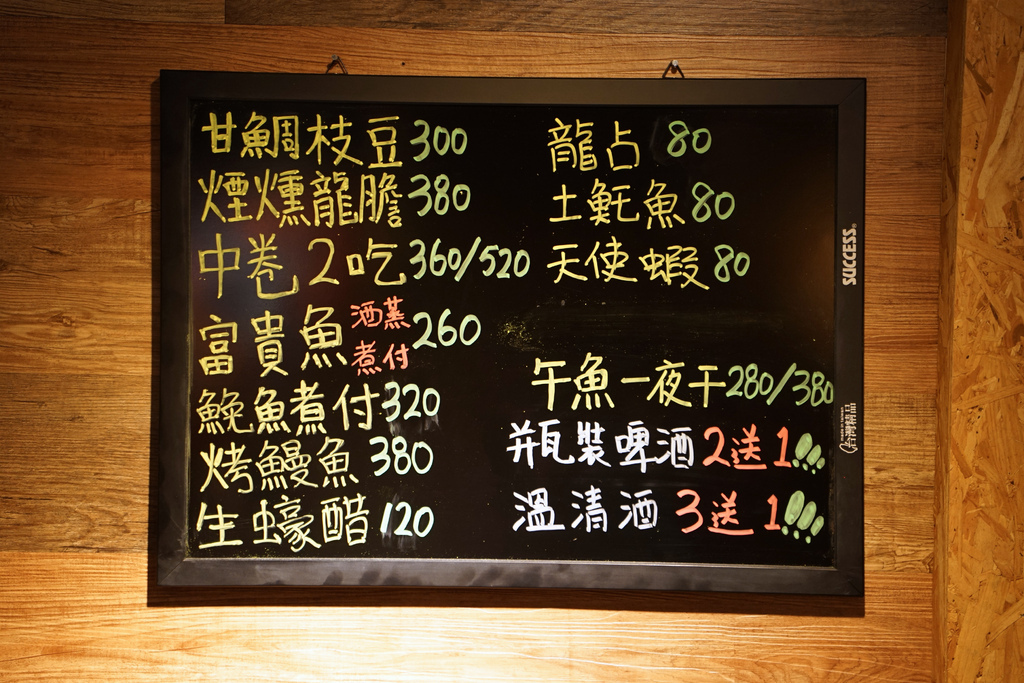 甘鯛枝豆300
煙燻龍膽380
中卷2吃360/520
富貴魚酒蒸煮付260
鮸魚煮付320
烤鰻魚380
生蠔醋120
龍占80
土魠魚80
天使蝦80
午魚一夜干280/380
瓶裝啤酒2送1!!!
溫清酒3送1!!!
SUCCESS®
台灣精品